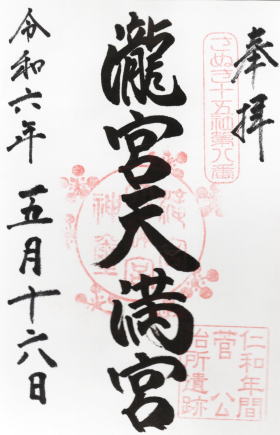 奉拝
さぬき十五社第八番
瀧宮天満宮
仁和年間
菅公
治所遺跡
令和六年
五月十六日